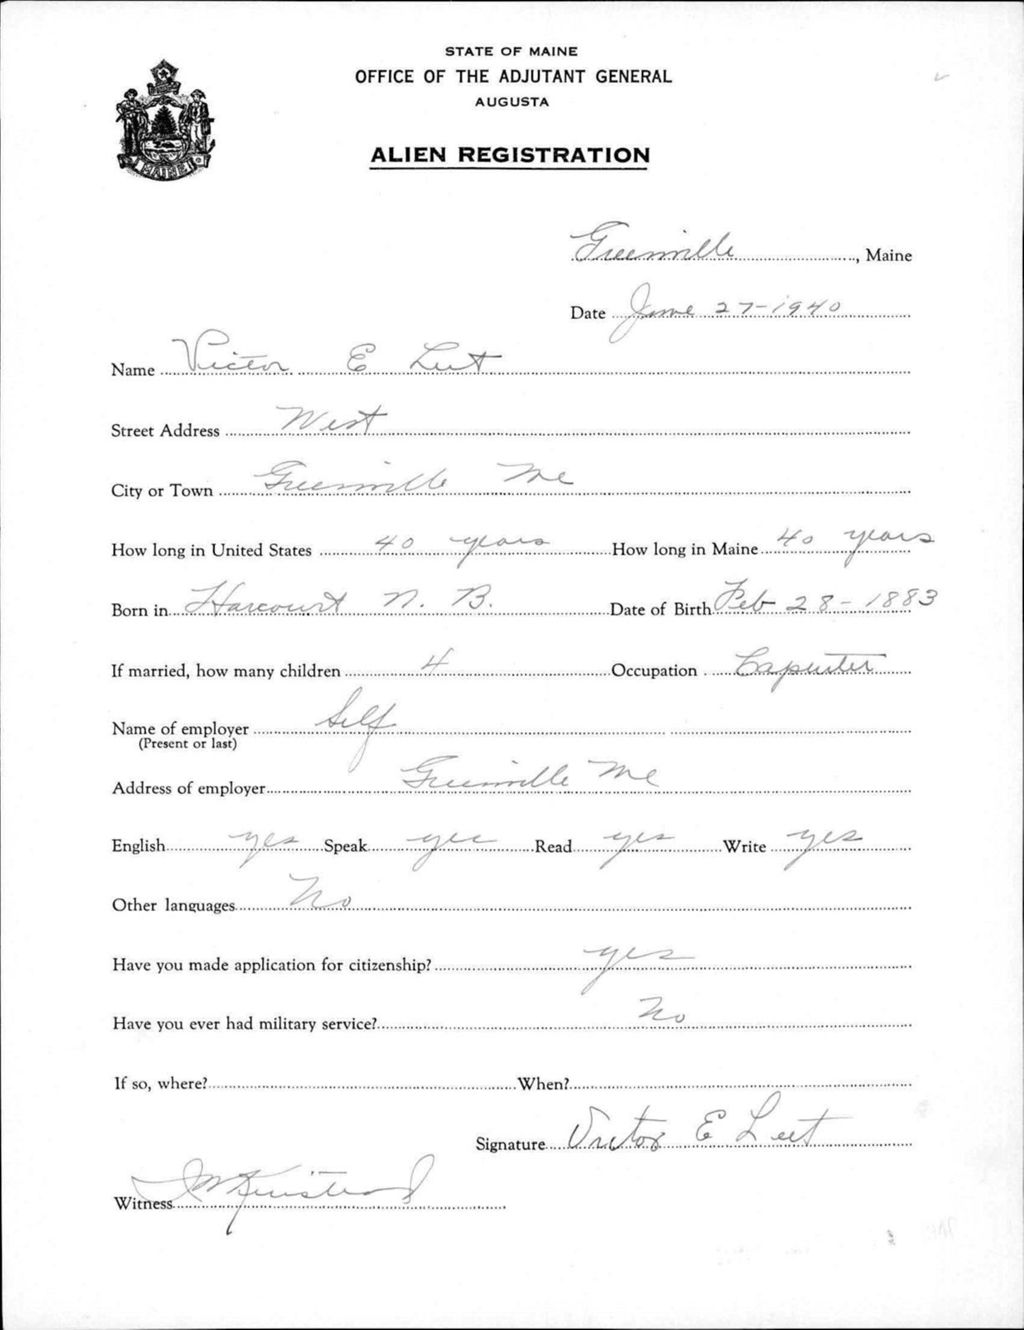 STATE OF MAINE
OFFICE OF THE ADJUTANT GENERAL
AUGUSTA
ALIEN REGISTRATION
MAINE
Greenville, Maine
Date June 27-1940
Name Victor E Leet
Street Address West
City or Town Greenville Me
How long in United States 40 years How long in Maine 40 years
Born in Harcourt N. B. Date of Birth Feb 28-1883
If married, how many children 4 Occupation Carpenter
Name of employer Self
(Present or last)
Address of employer Greenville Me
English yes Speak yes Read yes Write yes
Other languages No
Have you made application for citizenship? yes
Have you ever had military service? No
If so, where? When?
Signature Victor E Leet
Witness